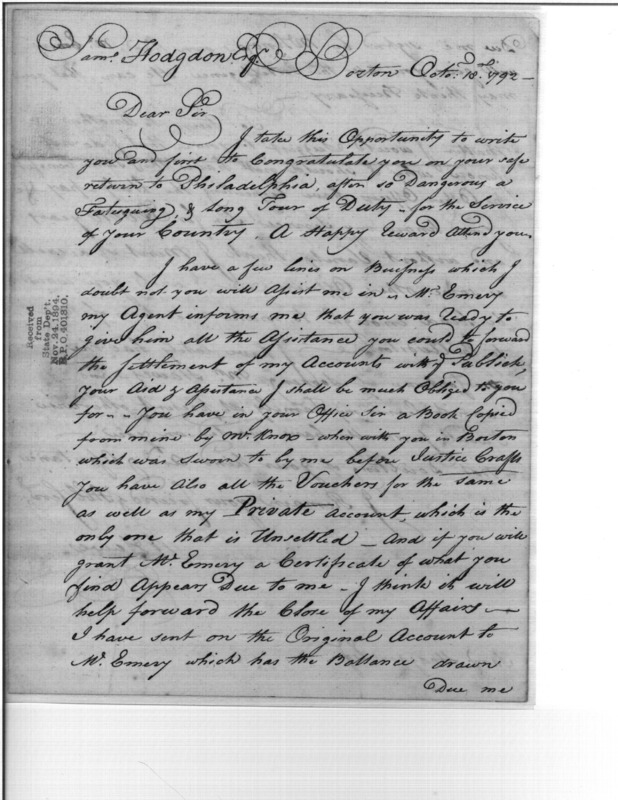 Saml. Hodgdon Esqr. Boston Octo. 18th. 1792 —
Dear Sir
I take this Opportunity to write
you and first to Congratulate you on your safe
return to Philadelphia, after so Dangerous a
Fatiguing, & Long Tour of Duty – for the Service
of Your Country – A Happy Reward Attend you.
I have a few lines on Buisness which I
doubt not you will Assist me in – Mr. Emery
my Agent informs me that you was ready to
give him all the Assistance you could to forward
the Settlement of my Accounts with ye Publick,
Your Aid & Assistance I shall be much Obliged to you
for – – You have in your Office Sir a Book Copied
from mine by Mr. Knox – when with you in Boston
which was sworn to by me before Justice Crafts
You have Also all the Vouchers for the same
as well as my Private Account, which is the
only one that is Unsettled – And if you will
grant Mr. Emery a Certificate of what you
find Appears Due to me – I think it will
help forward the Close of my Affairs –
I have sent on the Original Account to
Mr. Emery which has the Ballance drawn
Due me
Received
from
State Dep't.
Nov. 24, 1894.
R.P.O. 401810.